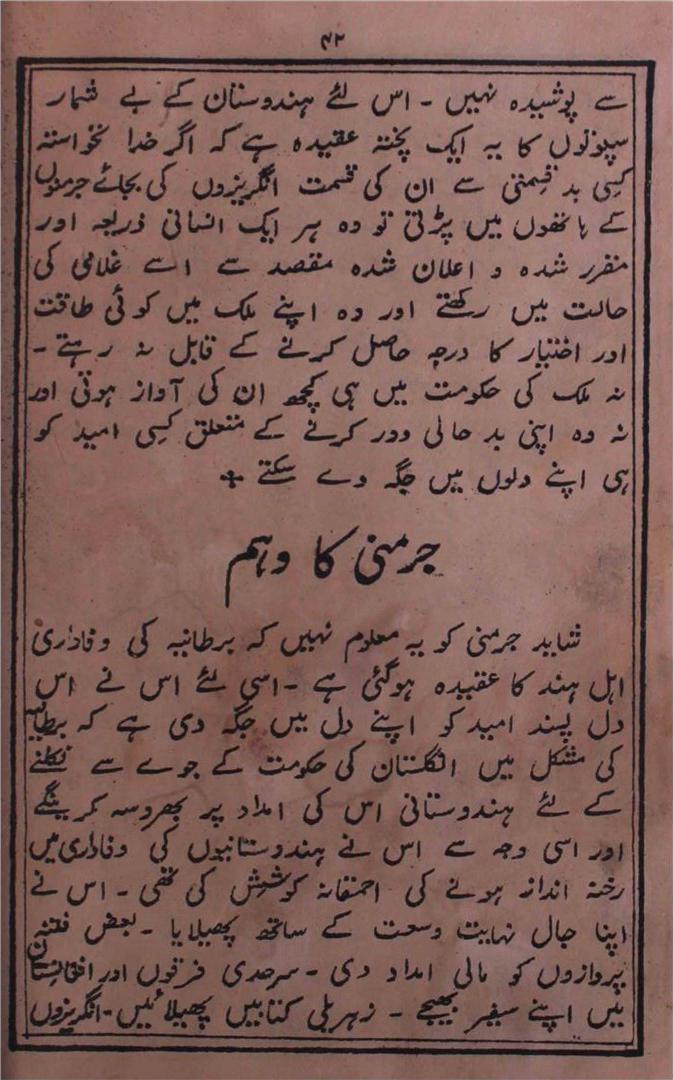 ۴۲
سے پوشیدہ نہیں ۔ اس لئے ہندوستان کے بے شمار
سپوتوں کا یہ ایک پختہ عقیدہ ہے کہ اگر خدا نخواستہ
کسی بد قسمتی سے ان کی قسمت انگریزوں کی بجائے جرمنوں
کے ہاتھوں میں پڑتی تو وہ ہر ایک انسانی ذریعہ اور
مقرر شدہ و اعلان شدہ مقصد سے اسے غلامی کی
حالت میں رکھتے اور وہ اپنے ملک میں کوئی طاقت
اور اختیار کا درجہ حاصل کرنے کے قابل نہ رہتے ۔
نہ ملک کی حکومت میں ہی کچھ ان کی آواز ہوتی اور
نہ وہ اپنی بد حالی دور کرنے کے متعلق کسی امید کو
ہی اپنے دلوں میں جگہ دے سکتے +
جرمنی کا وہم
شاید جرمنی کو یہ معلوم نہیں کہ برطانیہ کی وفاداری
اہل ہند کا عقیدہ ہوگئی ہے ۔ اسی لئے اس نے اس
دل پسند امید کو اپنے دل میں جگہ دی ہے کہ برطانیہ
کی مشکل میں انگلستان کی حکومت کے جوے سے نکلنے
کے لئے ہندوستانی اس کی امداد پر بھروسہ کرینگے
اور اسی وجہ سے اس نے ہندوستانیوں کی وفاداری میں
رخنہ انداز ہونے کی احمقانہ کوشش کی تھی ۔ اس نے
اپنا جال نہایت وسعت کے ساتھ پھیلایا ۔ بعض فتنہ
پروازوں کو مالی امداد دی ۔ سرحدی فرقوں اور افغانستان
میں اپنے سفیر بھیجے ۔ زہریلی کتابیں پھیلائیں ۔ انگریزوں